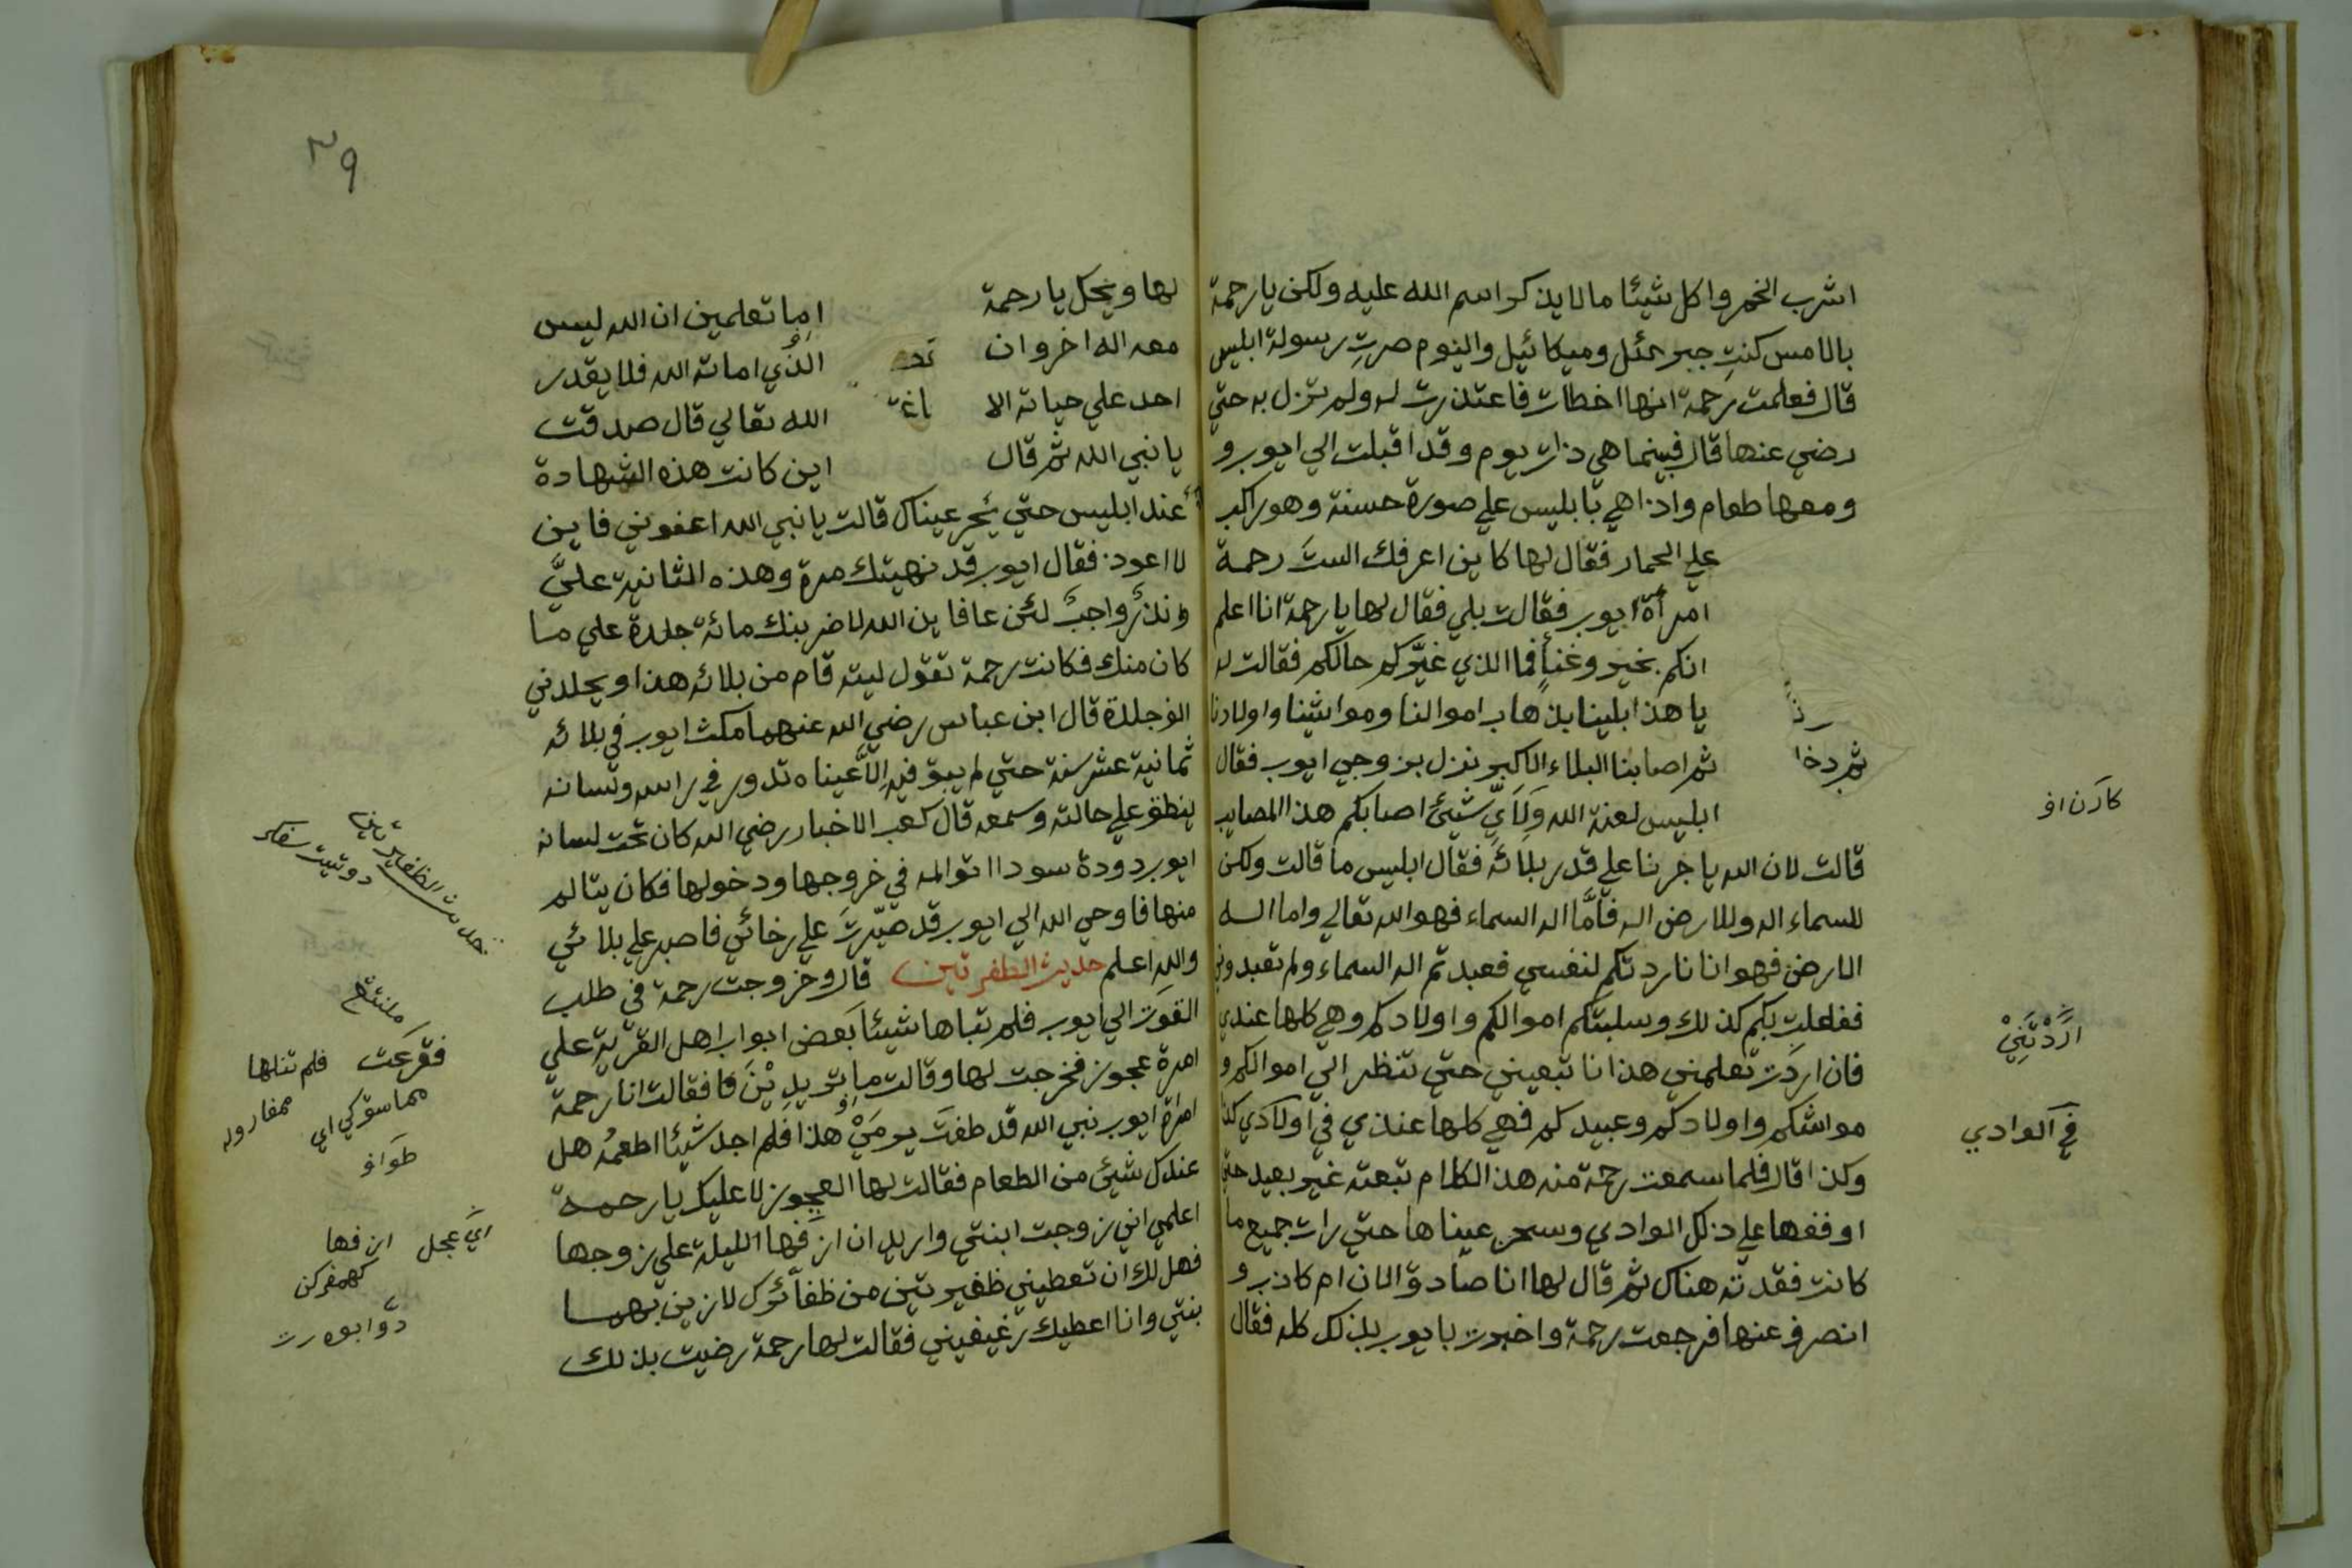 اشرب الخمر واكل شيئا مالا يذكر اسم الله عليه ولكن يا رحمة
بالامس كنتِ جبرئل وميكائيل واليوم صرتِ رسولة ابليس
قال فعلمت رحمة انها اخطات فاعتذرت له ولم تزل به حتي
رضي عنها قال فبينما هي ذات يوم وقد اقبلت الي ايوب و
ومعها طعام واذا هي بابليس علي صورة حسنة وهو راكب
علي الحمار فقال لها كاين اعرفك الستَ رحمة
امرأة ايوب فقالت بلي فقال لها يا رحمة انا اعلم
انكم بخير وغنأٍ فما الذي غيَّركم حالكم فقالت له
يا هذا بلينا بذهاب اموالنا ومواشينا واولادنا
ثم اصابنا البلاء الاكبر نزل بزوجي ايوب فقال
ثم دخا
ابليس لعنة الله وَلِاَيِّ شَيْئٍ اصابكم هذا المصايب
كادن اف
قالت لان الله ياجرنا علي قدر بلائه فقال ابليس ما قالت ولكن
للسماء اله وللارض اله فاَمَّا اله السماء فهو الله تعالي واما اله
الارض فهو انا نا ردتكم لنفسي فعبدتم اله السماء ولم تعبدوني
ففلعلت بكم كذلك وسلبتكم اموالكم واولادكم وهي كلها عندي
اَرَدْتَنِيْ
فان اردت تعلمني هذا نا تبعيني حتي تنظر الي اموالكم و
مواشكم واولادكم وعبيدكم فهي كلها عندي في اولادي كذا
في الوادي
وكذا قال فلما سمعت رحمة منه هذا الكلام تبعته غير بعيد حتي
اوقفها علي ذلك الوادي وسحر عيناها حتي رات جميع ما
كانت فقدته هناك ثم قال لها انا صادق الان ام كاذب و
انصرف عنها فرجعت رحمة واخبرت بايوب بذلك كله فقال
٣٩
لها ويحك يا رحمة اما تعلمين ان الله ليس
معه اله اخر وان الذي اماته الله فلا يقدر
احد علي حياته الا الله تعالي قال صدقت
يا نبي الله ثم قال اين كانت هذه الشهادة
عند ابليس حتي يُحِر عيناك قالت يا نبي الله اعفوني فاين
لا اعود فقال ايوب قد نهيتك مرة وهذه الثانية عليَّ
ونذرٌ واجبٌ لئن عافاين الله لاضربنك مائة جلدة علي ما
كان منك فكانت رحمة تقول ليته قام من بلائه هذا ويجلدني
الف جلدة قال ابن عباس رضي الله عنهما مكث ايوب في بلائه
ثمانية عشر سنة حتي لم يبق فيه اِلاَّ عيناه تدور في راسه ولسانه
ينطق علي حالته وسمعه قال كعب الاخبار رضي الله كان تحت لسانه
ايوب دودة سودا اتوالمه في خروجها ودخولها فكان يتالم
منها فاوحي الله الي ايوب قد صبّرتَ علي رخائي فاصبر علي بلائي
والله اعلم حديث الظفرتين قال وخروجت رحمة في طلب
حديث الظفيرتين
القوت الي ايوب فلم تباها شيئا بعض ابواب اهل القرية علي
فقرعت فلم تنلها
امرة عجوز فخرجت لها وقالت ما تريدِيْنَ فا فقالت انا رحمة
امراة ايوب نبي الله قد طفت يومَيْ هذا فلم اجد شيئا اطعمُه هل
طواف
عندك شيئ من الطعام فقالت لها العجوز لا عليك يا رحمة
اعلمي اني زوجت ابنتي واريد ان ازفّها الليلة علي زوجها
اي عجل ازفها
فهل لك ان تعطيني ظفيرتين من ظفائرك لازين بهما
بنتي وانا اعطيك رغيفيني فقالت لها رحمة رضيت بذلك